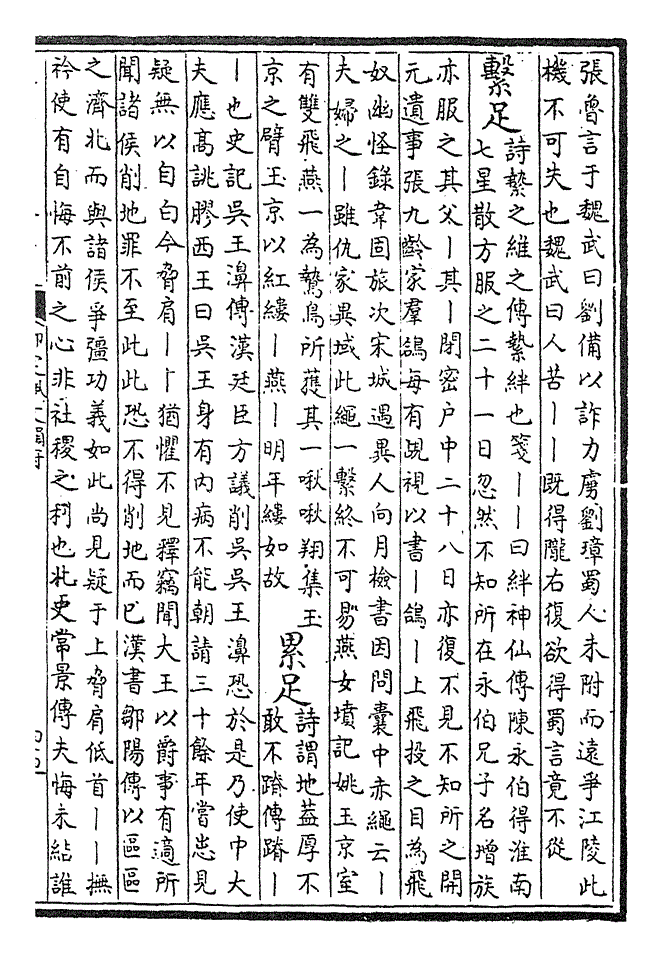 張魯言于魏武曰劉備以詐力虜劉璋蜀人未附而遠爭江陵此
機不可失也魏武曰人苦丨丨既得隴右復欲得蜀言竟不從
繫足
詩縶之維之傳縶絆也箋丨丨曰絆神仙傳陳永伯得淮南
七星散方服之二十一日忽然不知所在永伯兄子名增族
亦服之其父丨其丨閉密户中二十八日亦復不見不知所之開
元遺事張九齡家羣鴿每有覘視以書丨鴿丨上飛投之目為飛
奴幽怪錄韋固旅次宋城遇異人向月檢書因問囊中赤繩云丨
夫婦之丨雖仇家異域此繩一繫終不可易燕女墳記姚玉京室
有雙飛燕一為鷙鳥所獲其一啾啾翔集玉
京之臂玉京以紅縷丨燕丨明年縷如故
累足
詩謂地蓋厚不
敢不蹐傳蹐丨
丨也史記吳王濞傳漢廷臣方議削吳吳王濞恐於是乃使中大
夫應髙誂膠西王曰吳王身有内病不能朝請三十餘年嘗患見
疑無以自白今脅肩丨丨猶懼不見釋竊聞大王以爵事有適所
聞諸侯削地罪不至此此恐不得削地而已漢書鄒陽傳以區區
之濟北而與諸侯爭彊功義如此尚見疑于上脅肩低首丨丨撫
衿使有自悔不前之心非社稷之利也北史常景傳夫悔未結誰